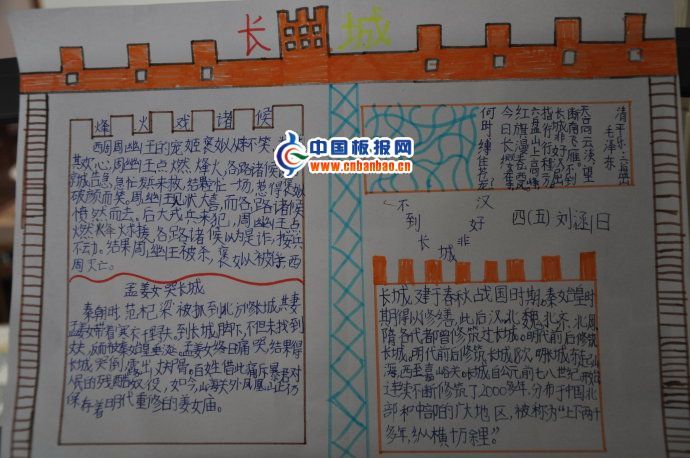 长城
烽火戏诸侯
西周周幽王的宠姬褒姒从来不笑
周幽王点燃烽火,各路诸侯
急忙发兵来救,结果忙一场,惹得褒姒
破颜而笑,幽王见状大喜,而各路诸侯
愤然而去。后大戎兵来犯,周幽王点
燃烽火求援,各路诸侯以为是诈,按兵
不动。结果周幽王被杀,褒姒被掳,西
周灭亡。
孟姜女哭长城
秦朝时,范杞梁被抓到北方修长城。其妻
孟姜女带着寒衣千里寻夫。到长城脚下,不但未找到
丈夫,反而被秦始皇垂涎。孟姜女终日痛哭,结果得
长城哭倒,露出丈夫尸骨。百姓借此痛斥暴君对
人民的残酷奴役,如今山海关外凤凰山还仍
保存着明代重修的姜女庙。
中国板报网
www.cnbanbao.cn
清平乐·六盘山
毛泽东
天高云淡,望
断南飞雁。不到
长城非好汉,
指行程二万。
六盘山上高峰,
红旗漫卷西风。
今日长缨在手,
何时缚住苍龙?
不到长城非好汉
四(五) 刘涵日
长城建于春秋战国时期。秦始皇时
期得以修缮,此后汉、北魏、北齐、北周、
隋各代都曾修筑过长城。明代前后修筑
长城。明代前后修筑长城18次,明长城东起山
海,西至嘉峪关。长城自公元前七八世纪开始
连续不断修筑了2000多年,分布于中国北
部和中部的广大地区,被称为“上下两千
多年,纵横十万里”。